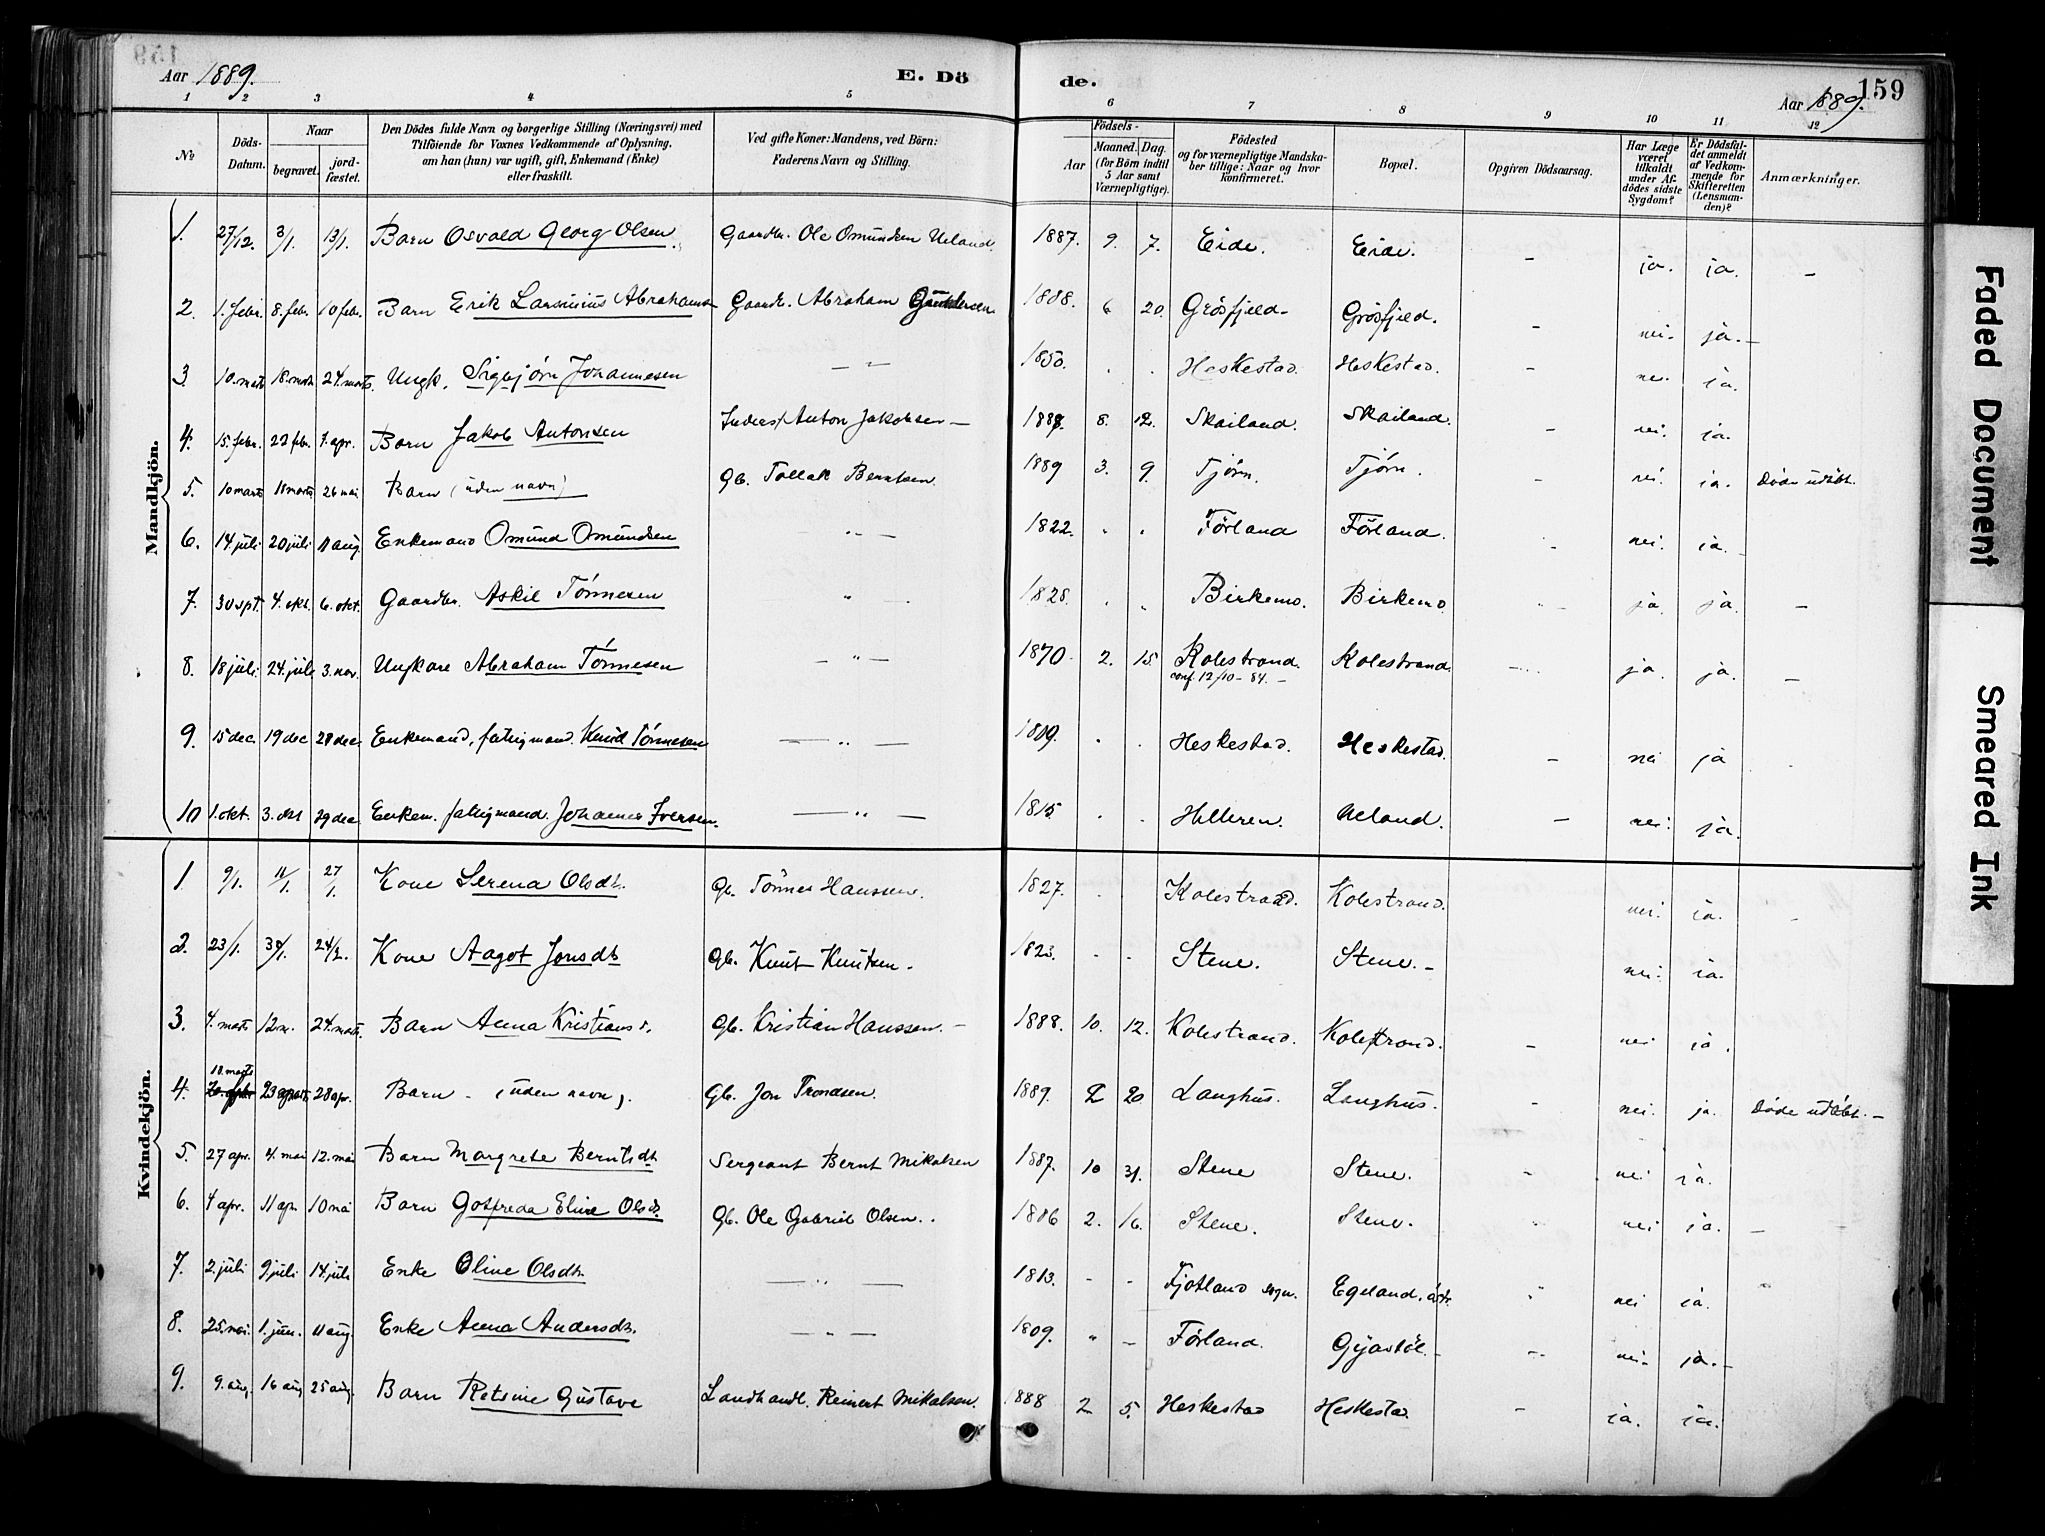 Aar 1889. E. Dö de. Aar 1889. 159
1 2 3 4 5 6 7 8 9 10 11 12
№ Döds-Datum. Naar begravet. jord-fæstet. Den Dödes fulde Navn og borgerlige Stilling (Næringsvei) med Tilföiende for Voxnes Vedkommende af Oplysning, om han (hun) var ugift, gift, Enkemand (Enke) eller fraskilt. Ved gifte Koner: Mandens, ved Börn: Faderens Navn og Stilling. Födsels- Aar Maaned. Dag. (for Börn indtil 5 Aar samt Værnepligtige). Födested og for værnepligtige Mandska-ber tillige: Naar og hvor konfirmeret. Bopæl. Opgiven Dödsaarsag. Har Læge været tilkaldt under Af-dödes sidste Sygdom? Er Dödsfal-det anmeldt af Vedkom-mende for Skifteretten (Lensman-den)? Anmærkninger.
Mandkjön.
1. 27/12. 3/1. 13/1. Barn Osvald Georg Olsen. Gaardbr. Ole Omundsen Ueland. 1887. 9. 7. Eide. Eide. - ja. ja. -
2. 1. febr. 8. febr. 10 febr. Barn Erik Lausinius Abrahams Gaardb. Abraham Gundersen. 1888. 6 20. Grösfjeld- Grösfjeld. - nei. ja. -
3. 10. marts 18. marts 24. marts. Ungk. Sigbjörn Johannesen - " - 1850. . . Heskestad. Heskestad. - nei. ja.
4. 15. febr. 22 febr. 7. apr. Barn Jakob Antonsen Inders. Anton Jakobsen - 1887. 8. 12. Skailand. Skailand. - nei. ja.
5. 10 marts 11 marts 26 mai Barn (uden navn) Gb. Tollak Berntsen. 1889 3. 9. Tjörn. Tjörn. - nei. ja. Döde udöbt.
6. 14 juli 20 juli 11 aug. Enkemand Omund Omundsen " - 1822. . . Förland Förland. . nei. ja. -
7. 30 spt. 4. okt. 6. okt. Gaardbr. Askil Tönnesen " - 1828. . . Birkemo. Birkemo. - ja. ja. -
8. 18 juli. 24. juli 3. nov. Ungkare Abraham Tönnesen - " - 1870. 2. 15. Kolestrand. conf. 12/10-84. - Kolestrand. - ja. ja. -
9. 15 dec. 19 dec 28 dec. Enkemand, fattigmand. Knud Tönnesen - " - 1819. . . Heskestad. Heskestad. - nei ja .
10 1. okt. 3. okt 29 dec. Enkem. fattigmand. Johannes Iversen. - " - 1815. . . Helleren. Ueland. - nei. ja.
Kvindekjön.
1 9/1. 11/1. 27/1. Kone Serena Olsdt. Gb. Tönnes Hanssen. 1827. . . Kolestrand. Kolestrand. nei. ja. .
2. 23/1. 30/1. 24/2. Kone Aagot Jonsdt Gb. Knut Knutsen. 1823. . . Stene. Stene. - nei. ja.
3. 4. marts 12 m. 24. marts. Barn Anna Kristians d. Gb. Kristian Hanssen. - 1888. 10. 12. Kolestrand. Kolestrand. - nei ja.
4. 18. marts 23 28 apr. Barn - (uden navn). Gb. Jon Trondsen. 1889. 2 20. Langhus. Langhus. - nei. ja. Döde udöbt. -
5. 27 apr. 4. mai 12. mai Barn Margrete Berntsdt. Sergeant Bernt Mikalsen 1887. 10 31. Stene Stene. - nei ja.
6. 4 apr. 11 apr. 10 mai Barn Gotfreda Eline Olsdt. Gb. Ole Gabriel Olsen. . 1886 2. 16. Stene. Stene. . nei ja. -
7. 2. juli 9 juli 14. juli Enke Oline Olsdtr. - " - 1813. - - Fjotland sogn. Egeland, östr. " nei ja. "
8. 25. mai. 1. juni. 11 aug. Enke Anna Andersdtr. - " - 1809. " - Förland. Gyastöl. - - nei. ja. -
9. 9. aug. 16 aug 25 aug. Barn Retsine Gustave Landhandl. Reinert Mikalsen. 1888 2 5. Heskestad Heskestad. - ja. ja.
Faded Document
Smeared Ink